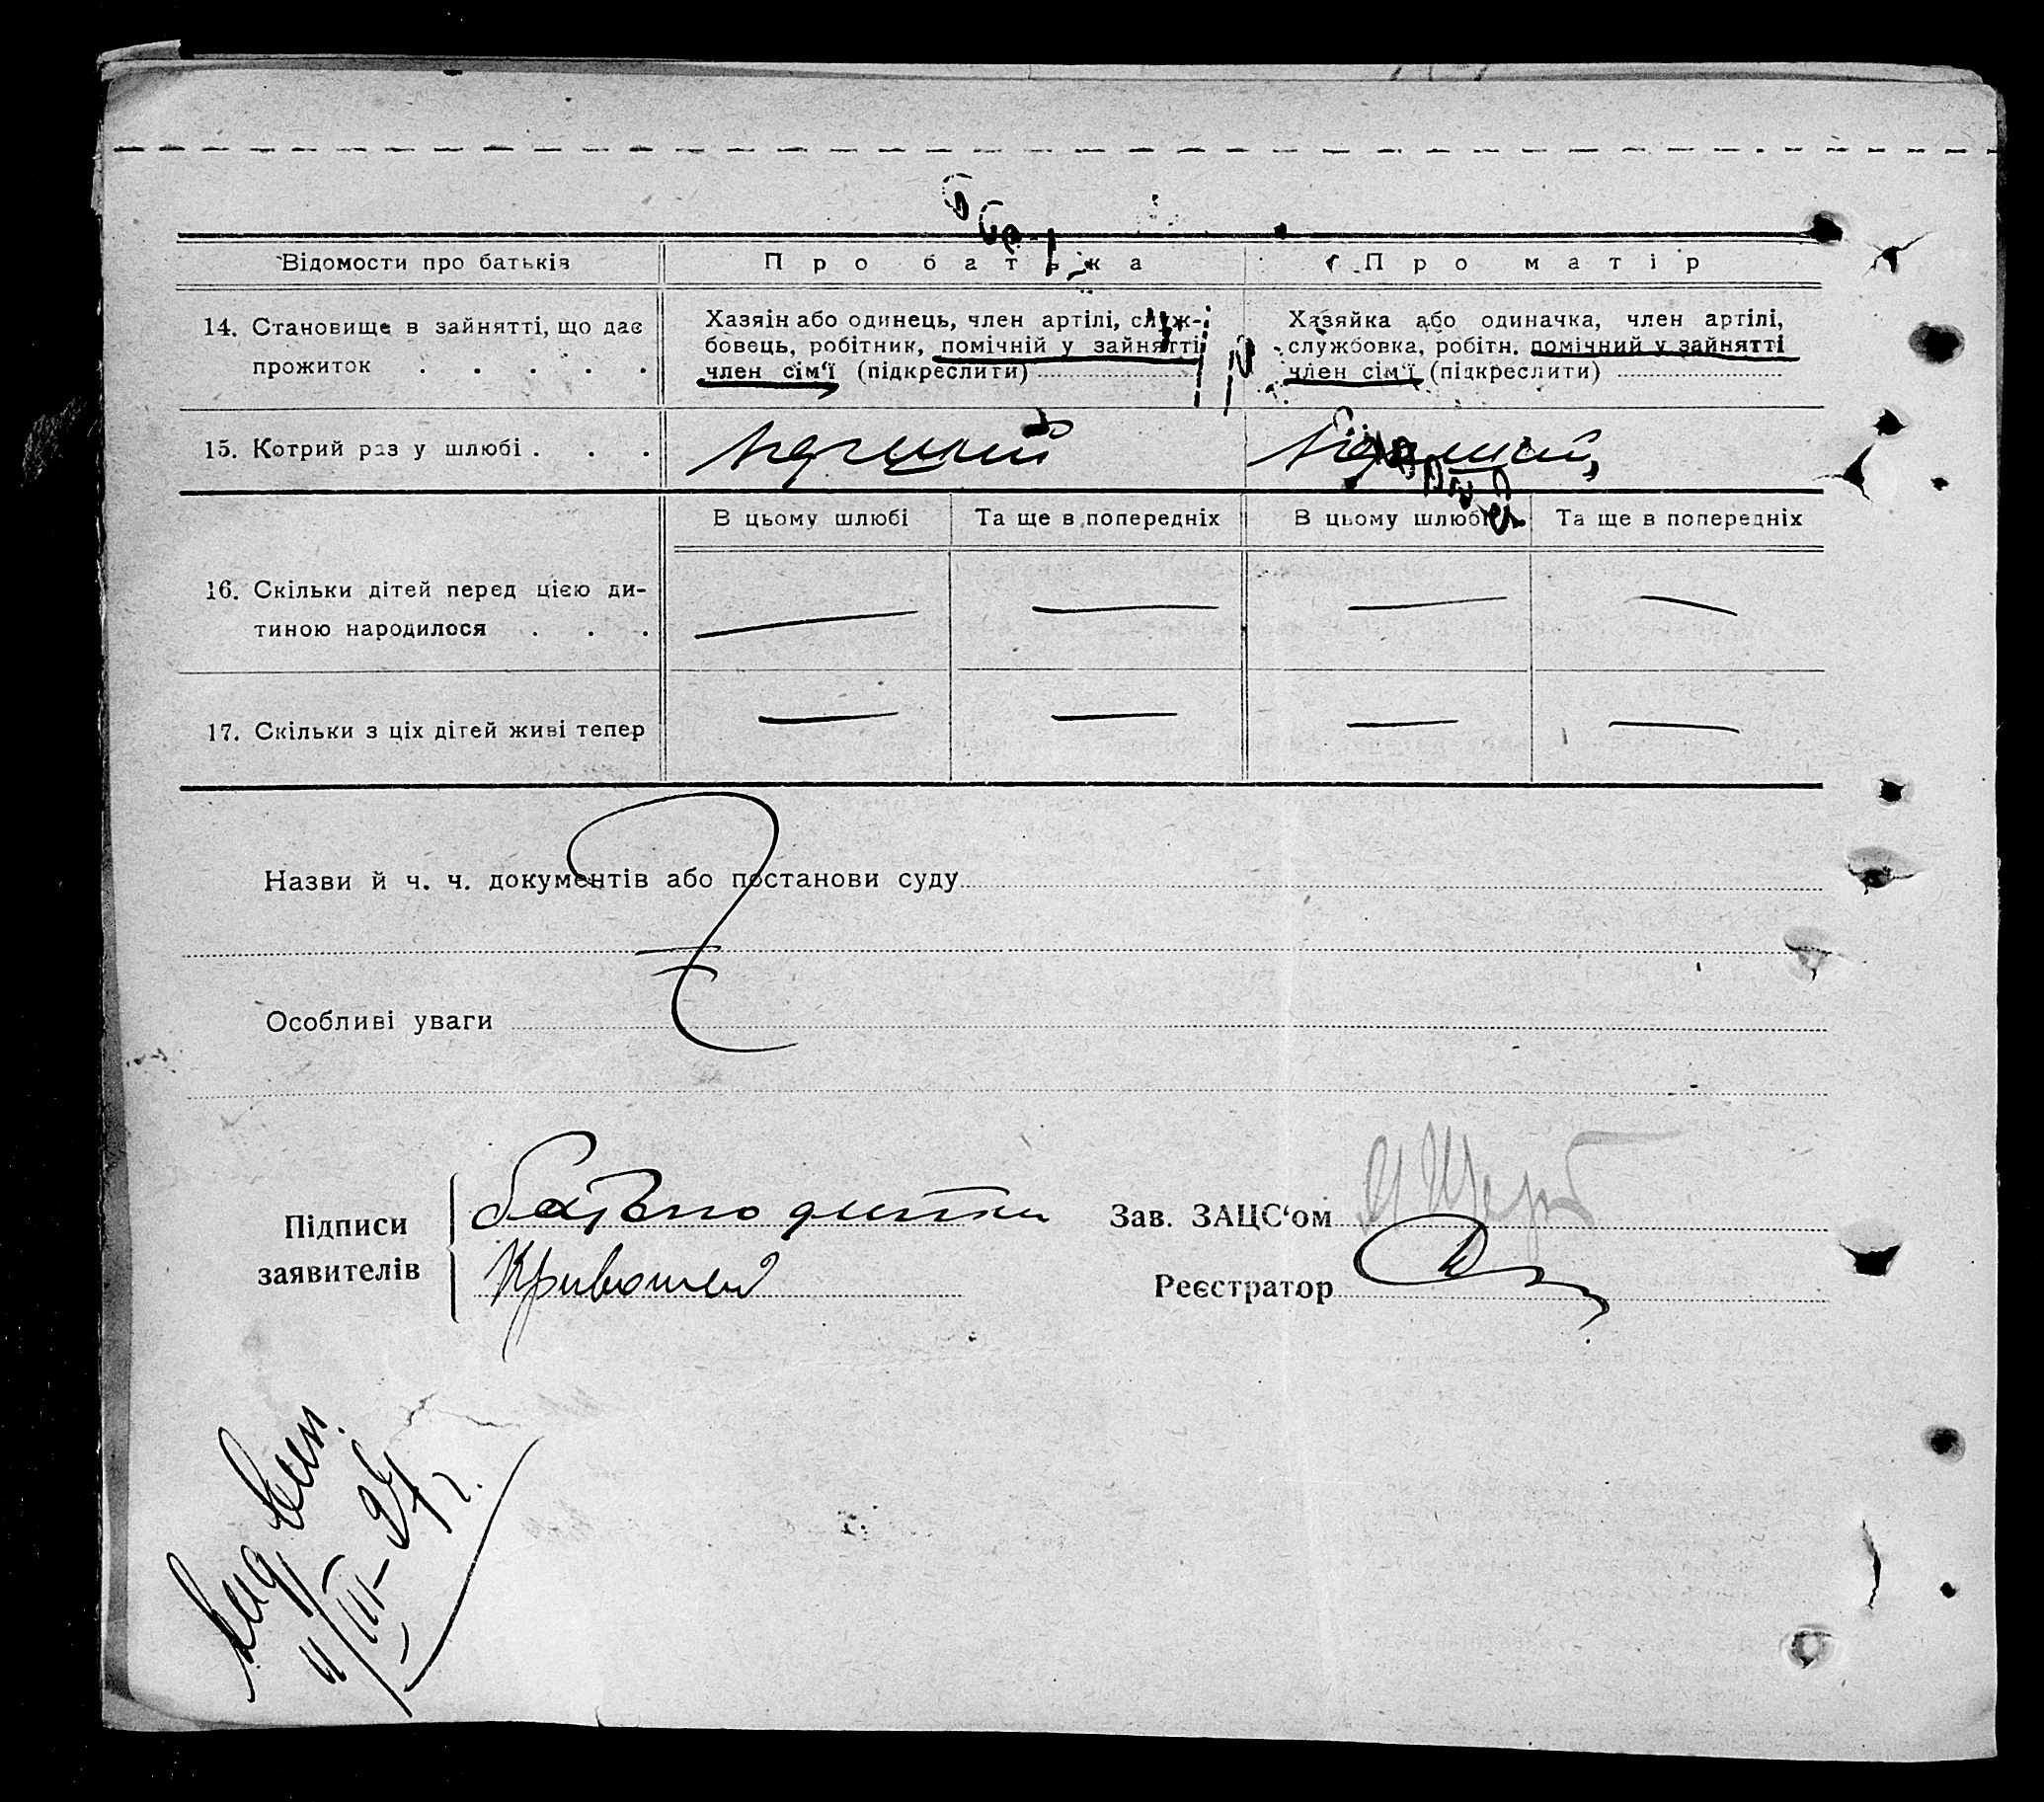 Відомости про батьків Про батька Про матір
14. Становище в зайнятті, що дає
прожиток . . . . .
Хазяін або одинець, член артілі, служ-
бовець, робітник, помічній у зайнятті
член сім'ї (підкреслити)
Хазяйка або одиначка, член артілі,
службовка, робітн. помічний у зайнятті
член сім'ї (підкреслити)
15. Котрий раз у шлюбі . . .
В цьому шлюбі Та ще в попередніх В цьому шлюбі Та ще в попередніх
16. Скільки дітей перед цією ди-
тиною народилося . . .
17. Скільки з ціх дітей живі тепер
Назви й ч. ч. документів або постанови суду
Особливі уваги
Підписи
заявителів
батько дитини
Кривошей
Зав. ЗАЦС'ом
Реєстратор